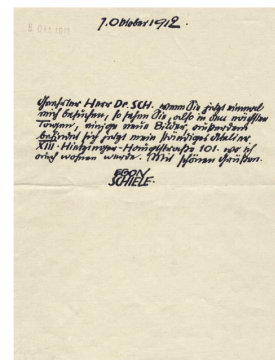 8. OKT. 1912
7. Oktober 1912.
Geehrter Herr Dr. SCH. wenn Sie jetzt einmal
mich besuchen, so sehen Sie, also in den nächsten
Tagen, einige neue Bilder, außerdem
befindet sich jetzt mein ständiges Atelier
XIII. Hietzinger-Hauptstraße 101. wo ich
auch wohnen werde. Mit schönen Grüßen.
EGON
SCHIELE.